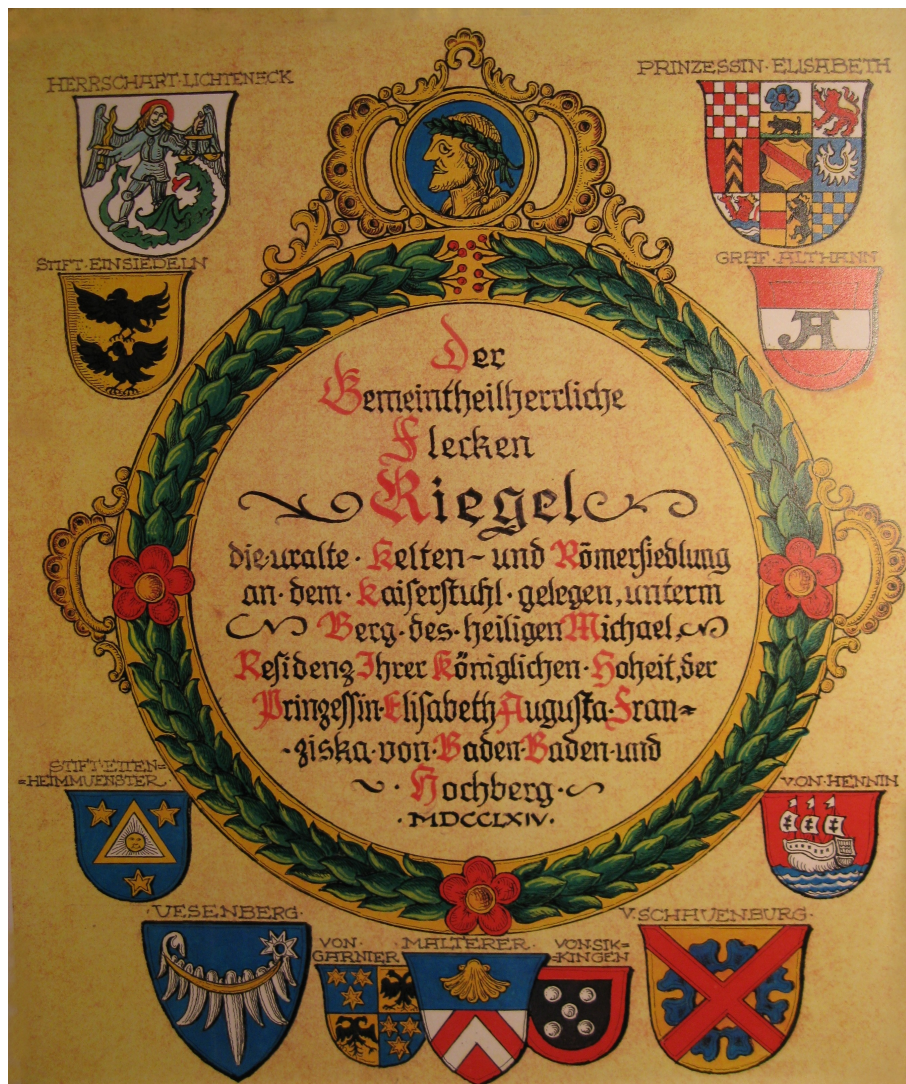 HERRSCHAFT·LICHTENECK
PRINZESSIN·ELISABETH
STIFT·EINSIEDELN
GRAF·ALTHANN
A
Der
Gemeintheilherrliche
Flecken
Riegel
die·uralte·Kelten-und Römersiedlung
an·dem·Kaiserstuhl·gelegen,unterm
Berg·des·heiligen Michael,
Residenz Ihrer Königlichen·Hoheit,der
Prinzessin·Elisabeth Augusta·Fran=
=ziska·von·Baden Baden·und
·Hochberg·
·MDCCLXIV·
STIFT·ETTEN=
=HEIMMUENSTER·
VON·HENNIN
·UESENBERG·
VON·
GARNIER
MALTERER·
VON SIK=
=KINGEN
V.SCHAUENBURG·